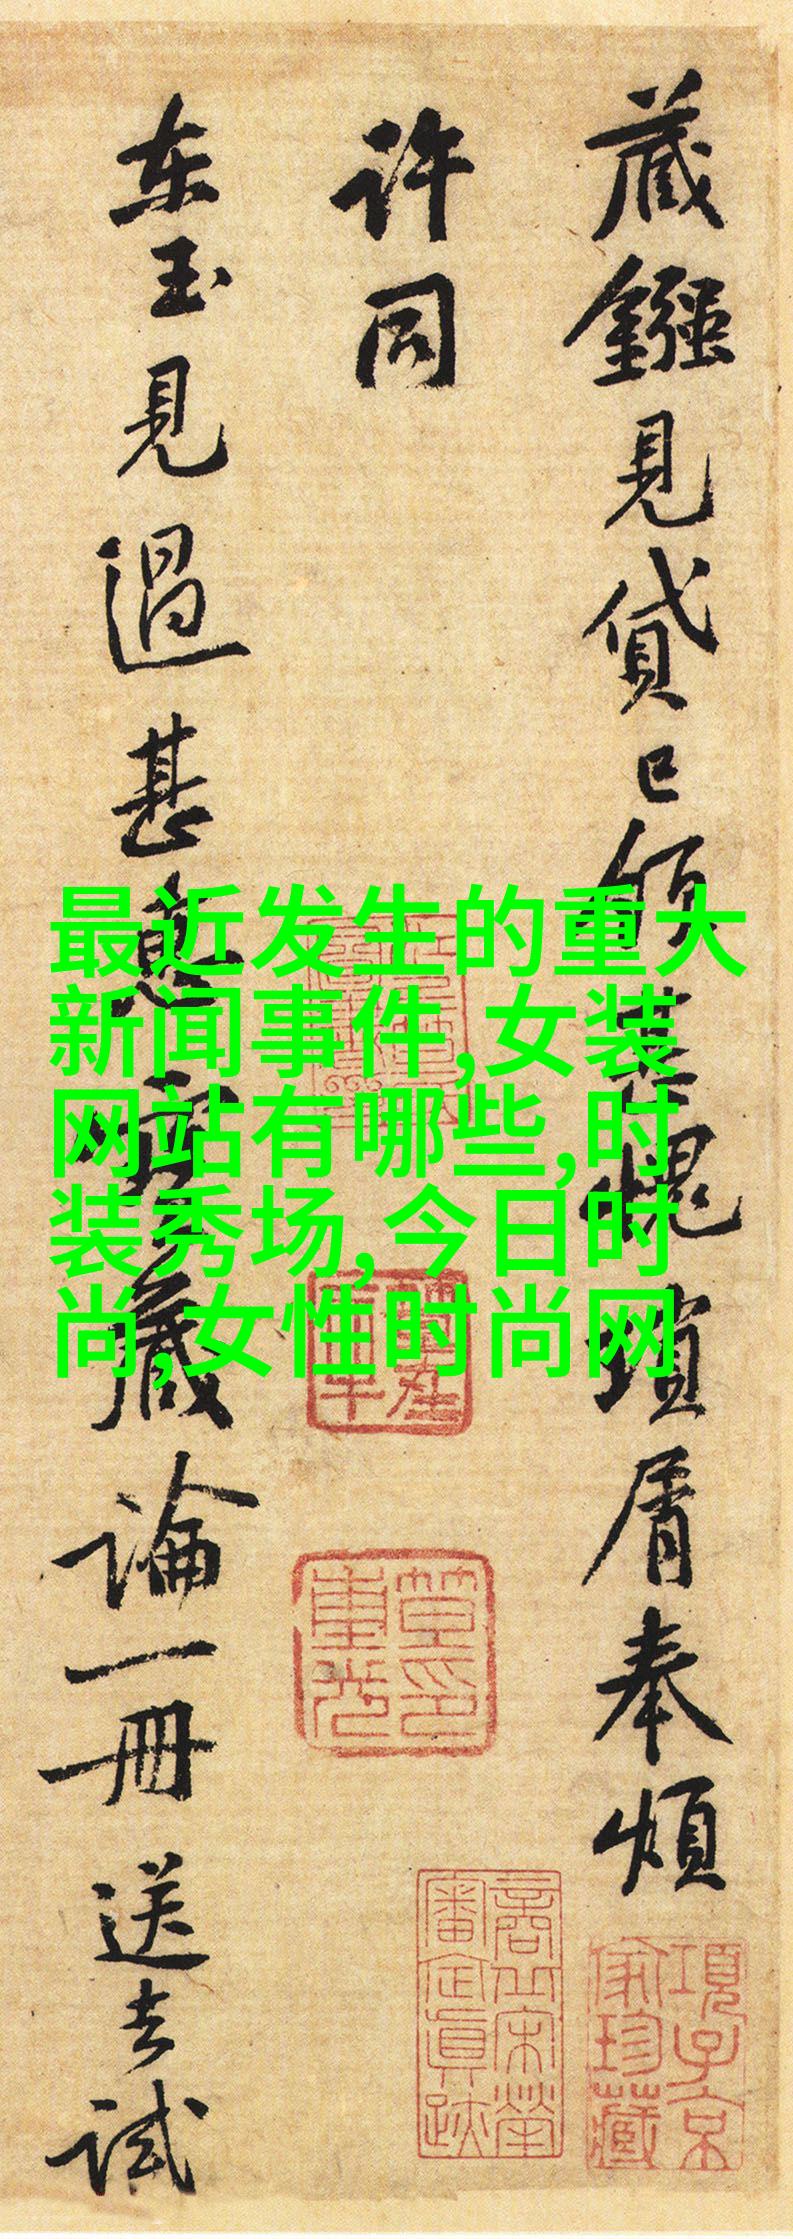 藏鏹見貸已領甚愧瑣屑奉煩
許同
东玉見過甚惠
藏論一冊送去試
最近发生的重大
新闻事件,女装
网站有哪些,时
装秀场,今日时
尚,女性时尚网
項子京
家珍藏